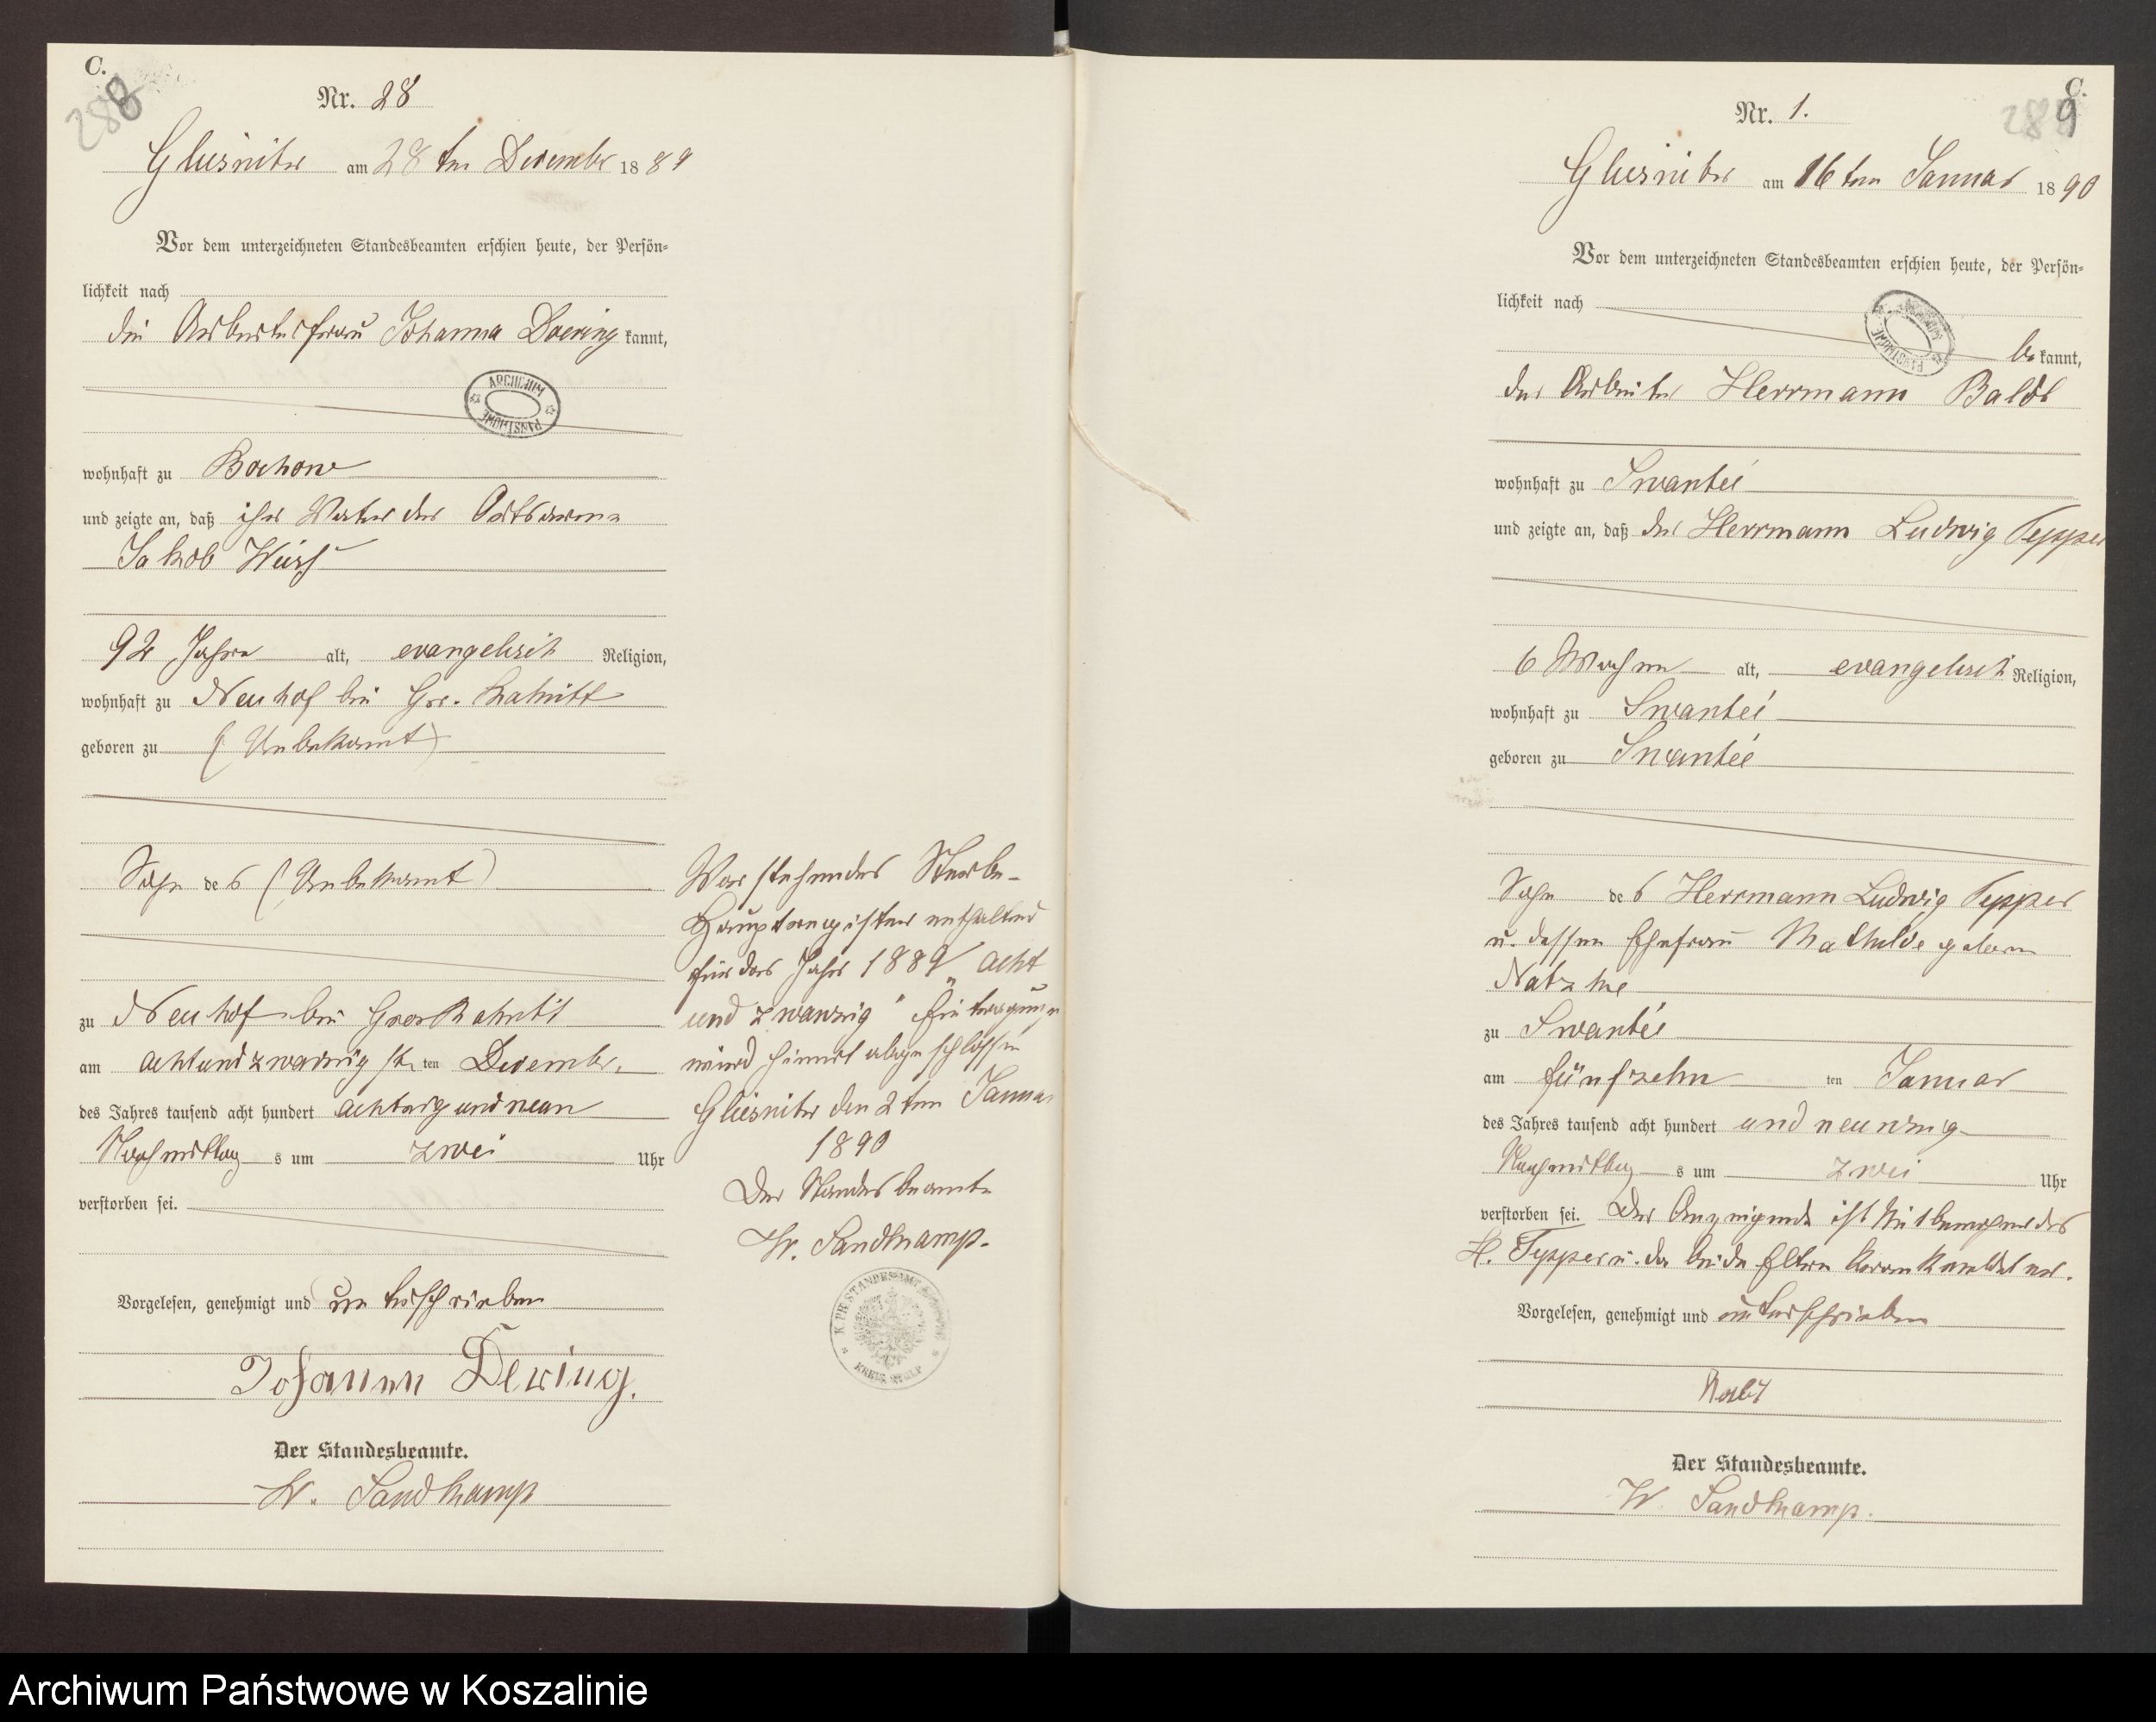 C.
288
Nr. 28
Glusnitz am 28ten December 1889
Vor dem unterzeichneten Standesbeamten erschien heute, der Persön-
lichkeit nach
die Arbeiterfrau Johanna Doering kannt,
wohnhaft zu Bochow
und zeigte an, daß ihr Vater der Ortsarme
Jakob
92 Jahre alt, evangelisch Religion,
wohnhaft zu Neuhof bei Gr.
geboren zu (Unbekannt)
Sohn des (Unbekannt)
zu Neuhof bei
am achtundzwanzigsten ten December
des Jahres tausend acht hundert achtzig und neun
Nachmittags um zwei Uhr
verstorben sei.
Vorgelesen, genehmigt und unterschrieben
Johann Dering.
Der Standesbeamte.
W. Sandkamp
Vorstehendes Sterbe-
Hauptregister enthaltend
für das Jahr 1889 „acht
und zwanzig" Eintragungen
wird hiermit abgeschlossen
Glusnitz den 2ten Januar
1890
Der Standesbeamte
W. Sandkamp.
K. PR. STANDESAMT
KREIS STOLP
C.
289
Nr. 1.
Glusnitz am 16ten Januar 1890
Vor dem unterzeichneten Standesbeamten erschien heute, der Persön-
lichkeit nach
bekannt,
der Arbeiter Herrmann
wohnhaft zu Swantes
und zeigte an, daß der Herrmann Ludwig Tepper
6 Wochen alt, evangelisch Religion,
wohnhaft zu Swantes
geboren zu Swantes
Sohn des Herrmann Ludwig Tepper
u. dessen Ehefrau Mathilde geboren
Natzke
zu Swantes
am fünfzehn ten Januar
des Jahres tausend acht hundert und neunzig
Nachmittags um zwei Uhr
verstorben sei. Der Anzeigende ist Mitbewohner des
H. Tepper u. da beide Eltern krank
Vorgelesen, genehmigt und unterschrieben
Der Standesbeamte.
W. Sandkamp.
ARCHIWUM PAŃSTWOWE
ARCHIWUM PAŃSTWOWE
Archiwum Państwowe w Koszalinie